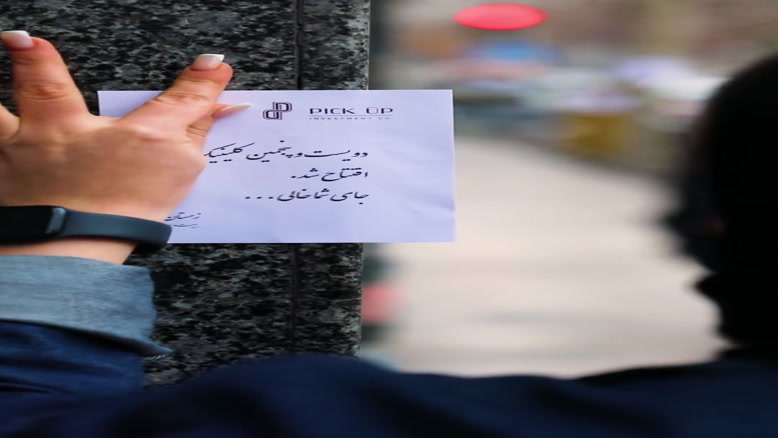 PICK UP
INVESTMENT CO.
دویست و پنجمین کلینیک
افتتاح شد.
جای شما خالی...
زمستان